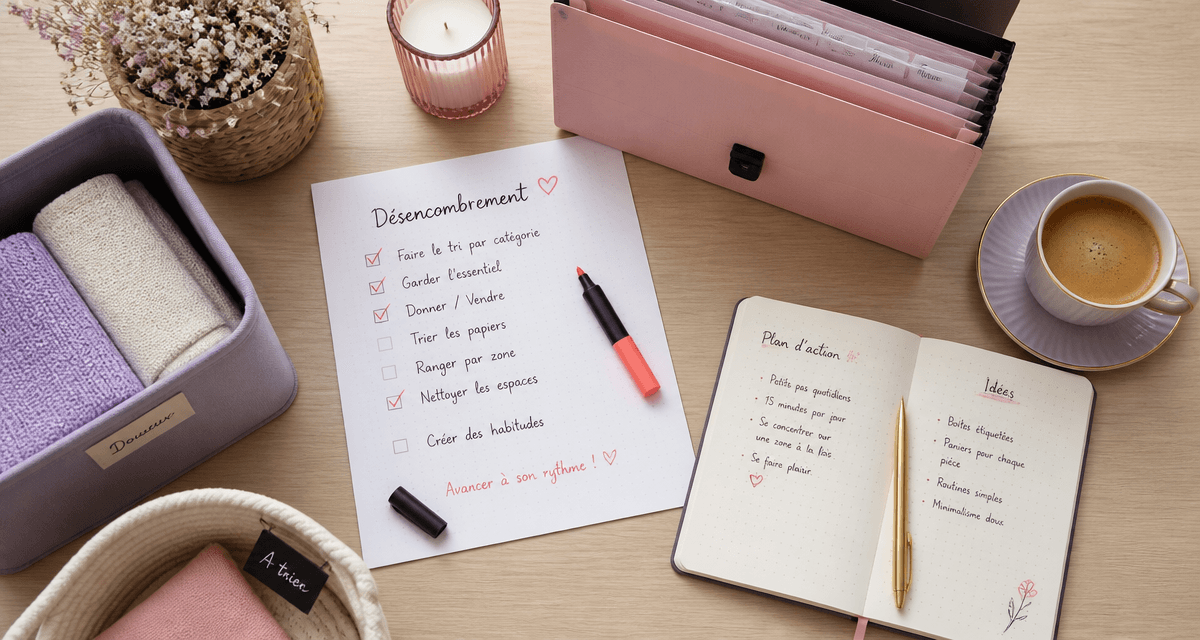 Désencombrement
Faire le tri par catégorie
Garder l'essentiel
Donner / Vendre
Trier les papiers
Ranger par zone
Nettoyer les espaces
Créer des habitudes
Avancer à son rythme !
Plan d'action
• Petits pas quotidiens
• 15 minutes par jour
• Se concentrer sur
une zone à la fois
• Se faire plaisir
Idées
• Boîtes étiquetées
• Paniers pour chaque
pièce
• Routines simples
• Minimalisme doux
A trier